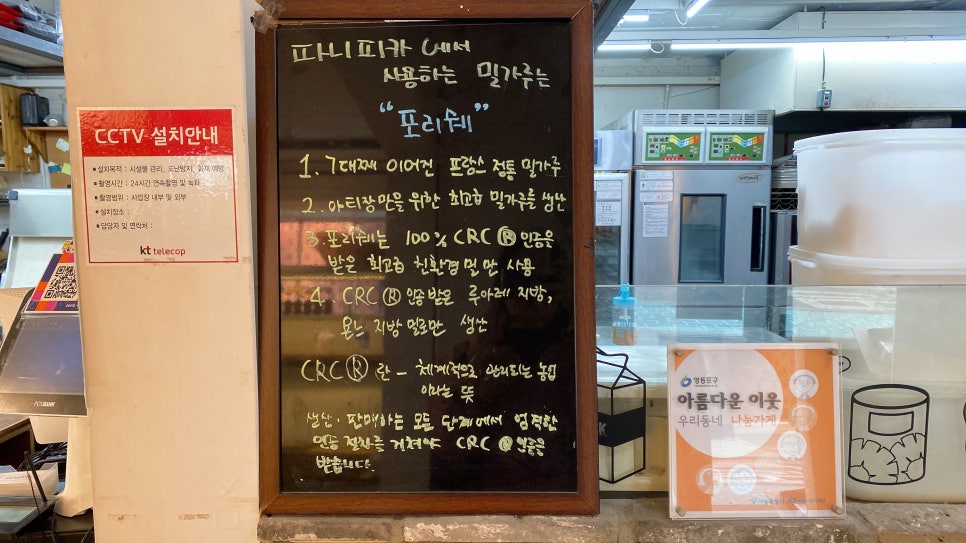 파니피카에서
사용하는 밀가루는
"포리쉐"
1. 7대째 이어진 프랑스 정통 밀가루
2. 아티장만을 위한 최고급 밀가루를 생산
3. 포리쉐는 100% CRC ® 인증을
받은 최고급 친환경 밀만 사용
4. CRC ® 인증받은 루아레 지방,
욘느 지방 밀로만 생산
CRC ® 란 - 체계적으로 관리되는 농업
이라는 뜻
생산·판매하는 모든 단계에서 엄격한
인증 절차를 거쳐야 CRC ® 인증을
받습니다.
CCTV 설치안내
■ 설치목적 : 시설물 관리, 도난방지, 화재 예방
■ 촬영시간 : 24시간 연속촬영 및 녹화
■ 촬영범위 : 사업장 내부 및 외부
■ 설치장소 :
■ 담당자 및 연락처 :
kt telecop
POSBANK
영등포구
아름다운 이웃
우리동네 나눔가게
서울특별시